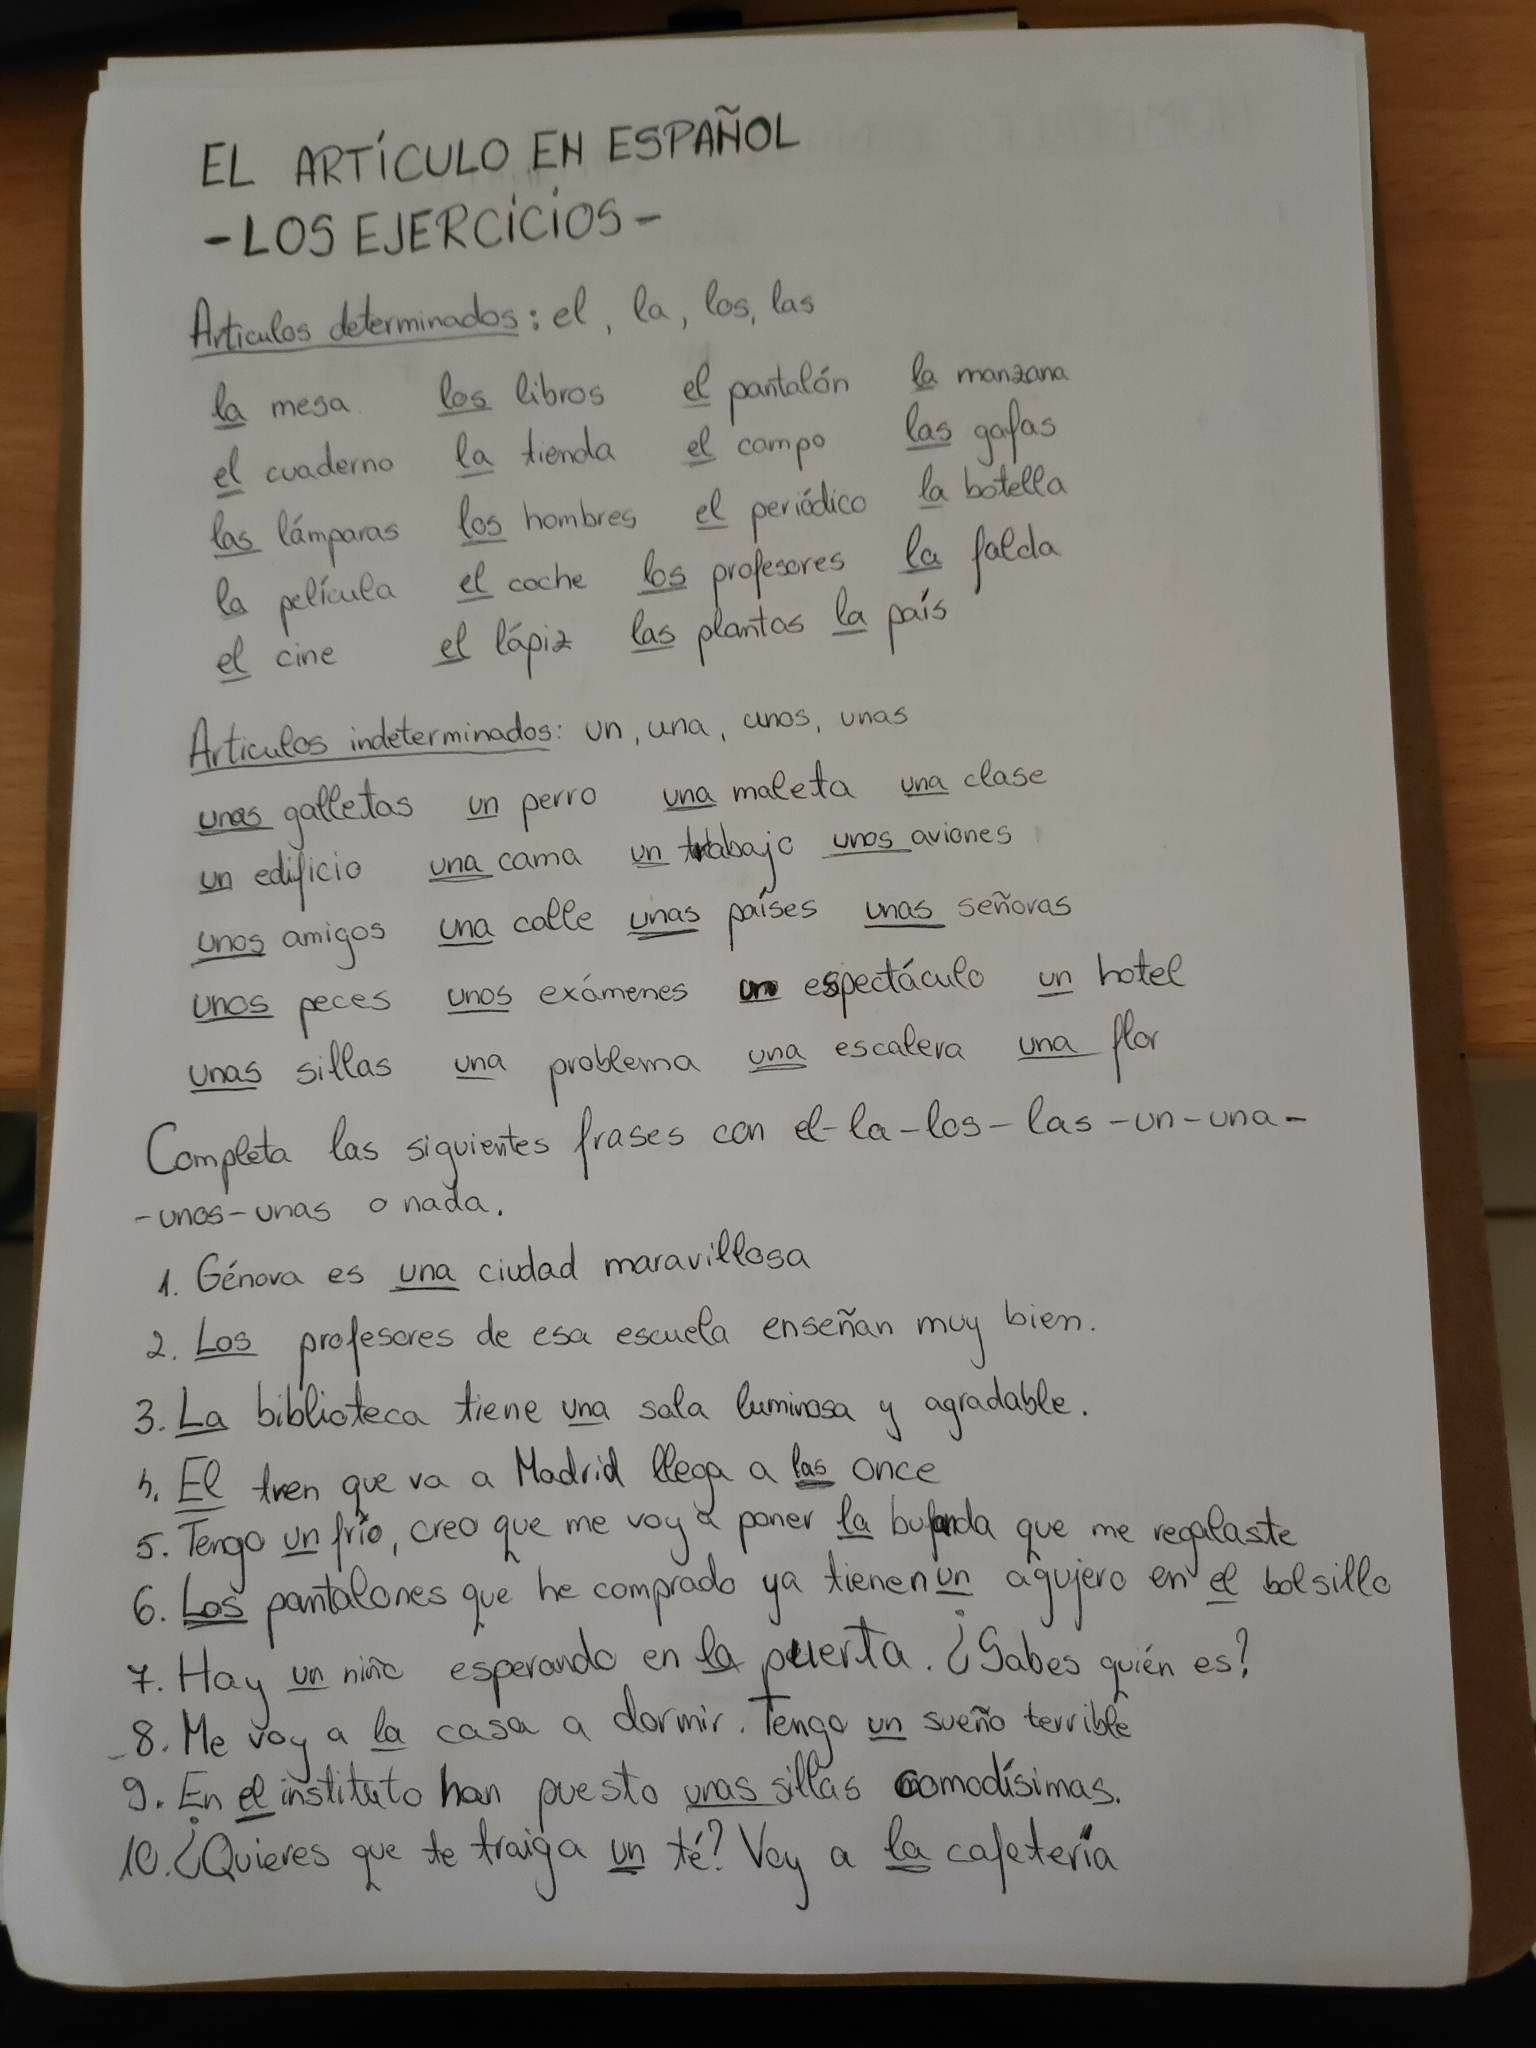 EL ARTÍCULO EN ESPAÑOL
-LOS EJERCICIOS-
Articulos determinados: el, la, los, las
la mesa los libros el pantalón la manzana
el cuaderno la tienda el campo las gafas
las lámparas los hombres el periódico la botella
la película el coche los profesores la falda
el cine el lápiz las plantas la país
Articulos indeterminados: un, una, unos, unas
unas galletas un perro una maleta una clase
un edificio una cama un trabajo unos aviones
unos amigos una calle unas países unas señoras
unos peces unos exámenes un espectáculo un hotel
unas sillas una problema una escalera una flor
Completa las siguientes frases con el-la-los-las-un-una-
-unos-unas o nada.
1. Génova es una ciudad maravillosa
2. Los profesores de esa escuela enseñan muy bien.
3. La biblioteca tiene una sala luminosa y agradable.
4. El tren que va a Madrid llega a las once
5. Tengo un frío, creo que me voy a poner la bufanda que me regalaste
6. Los pantalones que he comprado ya tienen un agujero en el bolsillo
7. Hay un niño esperando en la puerta. ¿Sabes quién es?
8. Me voy a la casa a dormir. Tengo un sueño terrible
9. En el instituto han puesto unas sillas comodísimas.
10. ¿Quieres que te traiga un té? Voy a la cafetería